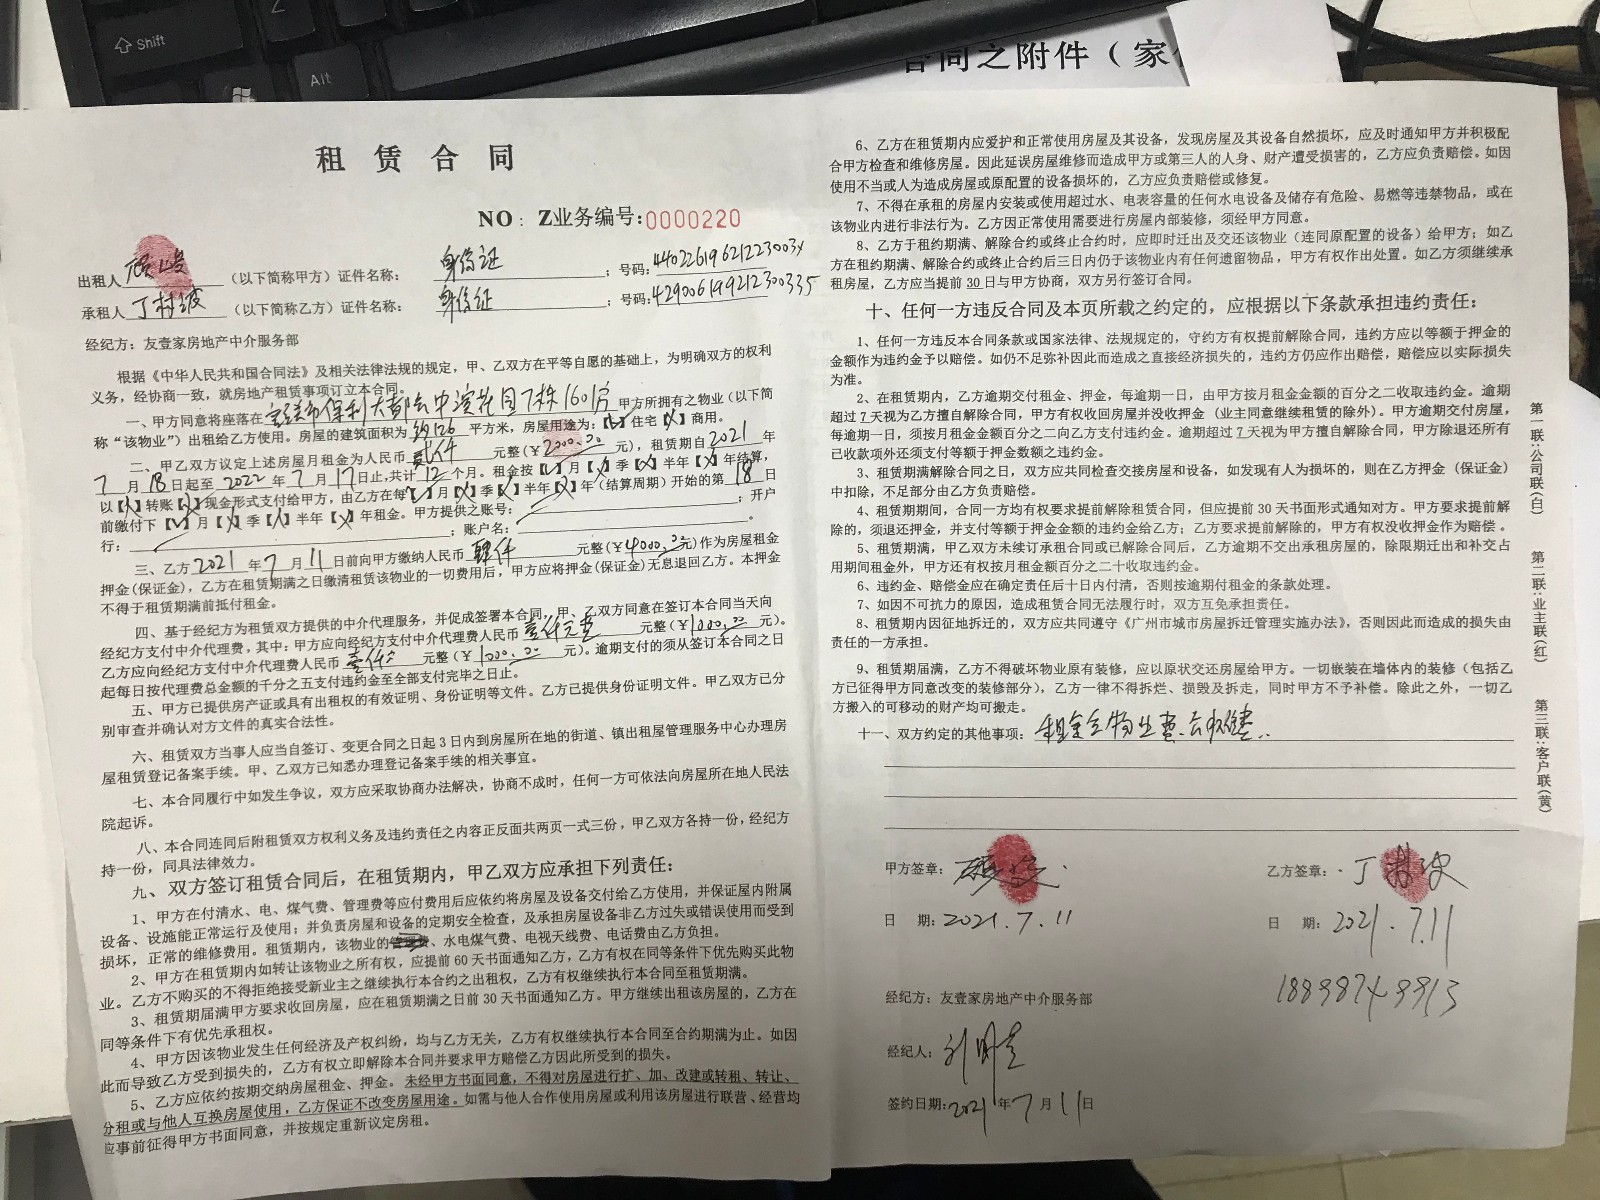 Shift
Alt
合同之附件（家
租赁合同
NO：Z业务编号：0000220
出租人（以下简称甲方）证件名称：身份证；号码：44022619621223003X
承租人（以下简称乙方）证件名称：身份证；号码：429006199212300335
经纪方：友壹家房地产中介服务部
根据《中华人民共和国合同法》及相关法律法规的规定，甲、乙双方在平等自愿的基础上，为明确双方的权利
义务，经协商一致，就房地产租赁事项订立本合同。
一、甲方同意将座落在保利大都会中滨花园7栋1601房甲方所拥有之物业（以下简
称“该物业”）出租给乙方使用。房屋的建筑面积为约126平方米，房屋用途为：【√】住宅【X】商用。
二、甲乙双方议定上述房屋月租金为人民币贰仟元整（¥2000.00元），租赁期自2021年
7月18日起至2022年7月17日止，共计12个月。租金按【√】月【X】季【X】半年【X】年结算，
以【X】转账【X】现金形式支付给甲方，由乙方在每【√】月【X】季【X】半年【X】年（结算周期）开始的第18日
前缴付下【√】月【X】季【X】半年【X】年租金。甲方提供之账号：；开户
行：；账户名：。
三、乙方2021年7月11日前向甲方缴纳人民币肆仟元整（¥4000.00元）作为房屋租金
押金（保证金），乙方在租赁期满之日缴清租赁该物业的一切费用后，甲方应将押金（保证金）无息退回乙方。本押金
不得于租赁期满前抵付租金。
四、基于经纪方为租赁双方提供的中介代理服务，并促成签署本合同，甲、乙双方同意在签订本合同当天向
经纪方支付中介代理费，其中：甲方应向经纪方支付中介代理费人民币壹仟元整元整（¥1000.00元）。
乙方应向经纪方支付中介代理费人民币壹仟元整（¥1000.00元）。逾期支付的须从签订本合同之日
起每日按代理费总金额的千分之五支付违约金至全部支付完毕之日止。
五、甲方已提供房产证或具有出租权的有效证明、身份证明等文件。乙方已提供身份证明文件。甲乙双方已分
别审查并确认对方文件的真实合法性。
六、租赁双方当事人应当自签订、变更合同之日起3日内到房屋所在地的街道、镇出租屋管理服务中心办理房
屋租赁登记备案手续。甲、乙双方已知悉办理登记备案手续的相关事宜。
七、本合同履行中如发生争议，双方应采取协商办法解决，协商不成时，任何一方可依法向房屋所在地人民法
院起诉。
八、本合同连同后附租赁双方权利义务及违约责任之内容正反面共两页一式三份，甲乙双方各持一份，经纪方
持一份，同具法律效力。
九、双方签订租赁合同后，在租赁期内，甲乙双方应承担下列责任：
1、甲方在付清水、电、煤气费、管理费等应付费用后应依约将房屋及设备交付给乙方使用，并保证屋内附属
设备、设施能正常运行及使用；并负责房屋和设备的定期安全检查，及承担房屋设备非乙方过失或错误使用而受到
损坏，正常的维修费用。租赁期内，该物业的、水电煤气费、电视天线费、电话费由乙方负担。
2、甲方在租赁期内如转让该物业之所有权，应提前60天书面通知乙方，乙方有权在同等条件下优先购买此物
业。乙方不购买的不得拒绝接受新业主之继续执行本合约之出租权，乙方有权继续执行本合同至租赁期满。
3、租赁期届满甲方要求收回房屋，应在租赁期满之日前30天书面通知乙方。甲方继续出租该房屋的，乙方在
同等条件下有优先承租权。
4、甲方因该物业发生任何经济及产权纠纷，均与乙方无关，乙方有权继续执行本合同至合约期满为止。如因
此而导致乙方受到损失的，乙方有权立即解除本合同并要求甲方赔偿乙方因此所受到的损失。
5、乙方应依约按期交纳房屋租金、押金。未经甲方书面同意，不得对房屋进行扩、加、改建或转租、转让、
分租或与他人互换房屋使用，乙方保证不改变房屋用途。如需与他人合作使用房屋或利用该房屋进行联营、经营均
应事前征得甲方书面同意，并按规定重新议定房租。
6、乙方在租赁期内应爱护和正常使用房屋及其设备，发现房屋及其设备自然损坏，应及时通知甲方并积极配
合甲方检查和维修房屋。因此延误房屋维修而造成甲方或第三人的人身、财产遭受损害的，乙方应负责赔偿。如因
使用不当或人为造成房屋或原配置的设备损坏的，乙方应负责赔偿或修复。
7、不得在承租的房屋内安装或使用超过水、电表容量的任何水电设备及储存有危险、易燃等违禁物品，或在
该物业内进行非法行为。乙方因正常使用需要进行房屋内部装修，须经甲方同意。
8、乙方于租约期满、解除合约或终止合约时，应即时迁出及交还该物业（连同原配置的设备）给甲方；如乙
方在租约期满、解除合约或终止合约后三日内仍于该物业内有任何遗留物品，甲方有权作出处置。如乙方须继续承
租房屋，乙方应当提前30日与甲方协商，双方另行签订合同。
十、任何一方违反合同及本页所载之约定的，应根据以下条款承担违约责任：
1、任何一方违反本合同条款或国家法律、法规规定的，守约方有权提前解除合同，违约方应以等额于押金的
金额作为违约金予以赔偿。如仍不足弥补因此而造成之直接经济损失的，违约方仍应作出赔偿，赔偿应以实际损失
为准。
2、在租赁期内，乙方逾期交付租金、押金，每逾期一日，由甲方按月租金金额的百分之二收取违约金。逾期
超过7天视为乙方擅自解除合同，甲方有权收回房屋并没收押金（业主同意继续租赁的除外）。甲方逾期交付房屋，
每逾期一日，须按月租金金额百分之二向乙方支付违约金。逾期超过7天视为甲方擅自解除合同，甲方除退还所有
已收款项外还须支付等额于押金数额之违约金。
3、租赁期满解除合同之日，双方应共同检查交接房屋和设备，如发现有人为损坏的，则在乙方押金（保证金）
中扣除，不足部分由乙方负责赔偿。
4、租赁期期间，合同一方均有权要求提前解除租赁合同，但应提前30天书面形式通知对方。甲方要求提前解
除的，须退还押金，并支付等额于押金金额的违约金给乙方；乙方要求提前解除的，甲方有权没收押金作为赔偿。
5、租赁期满，甲乙双方未续订承租合同或已解除合同后，乙方逾期不交出承租房屋的，除限期迁出和补交占
用期间租金外，甲方还有权按月租金额百分之二十收取违约金。
6、违约金、赔偿金应在确定责任后十日内付清，否则按逾期付租金的条款处理。
7、如因不可抗力的原因，造成租赁合同无法履行时，双方互免承担责任。
8、租赁期内因征地拆迁的，双方应共同遵守《广州市城市房屋拆迁管理实施办法》，否则因此而造成的损失由
责任的一方承担。
9、租赁期届满，乙方不得破坏物业原有装修，应以原状交还房屋给甲方。一切嵌装在墙体内的装修（包括乙
方已征得甲方同意改变的装修部分），乙方一律不得拆烂、损毁及拆走，同时甲方不予补偿。除此之外，一切乙
方搬入的可移动的财产均可搬走。
十一、双方约定的其他事项：租金含物业费
甲方签章：
乙方签章：丁
日期：2021.7.11
日期：2021.7.11
18898749913
经纪方：友壹家房地产中介服务部
经纪人：
签约日期：2021年7月11日
第一联：公司联（白）
第二联：业主联（红）
第三联：客户联（黄）